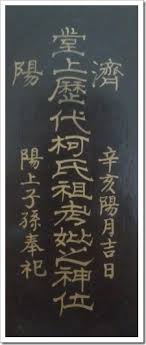 濟陽
辛亥陽月吉日
堂上歷代柯氏祖考妣之神位
陽上子孫奉祀